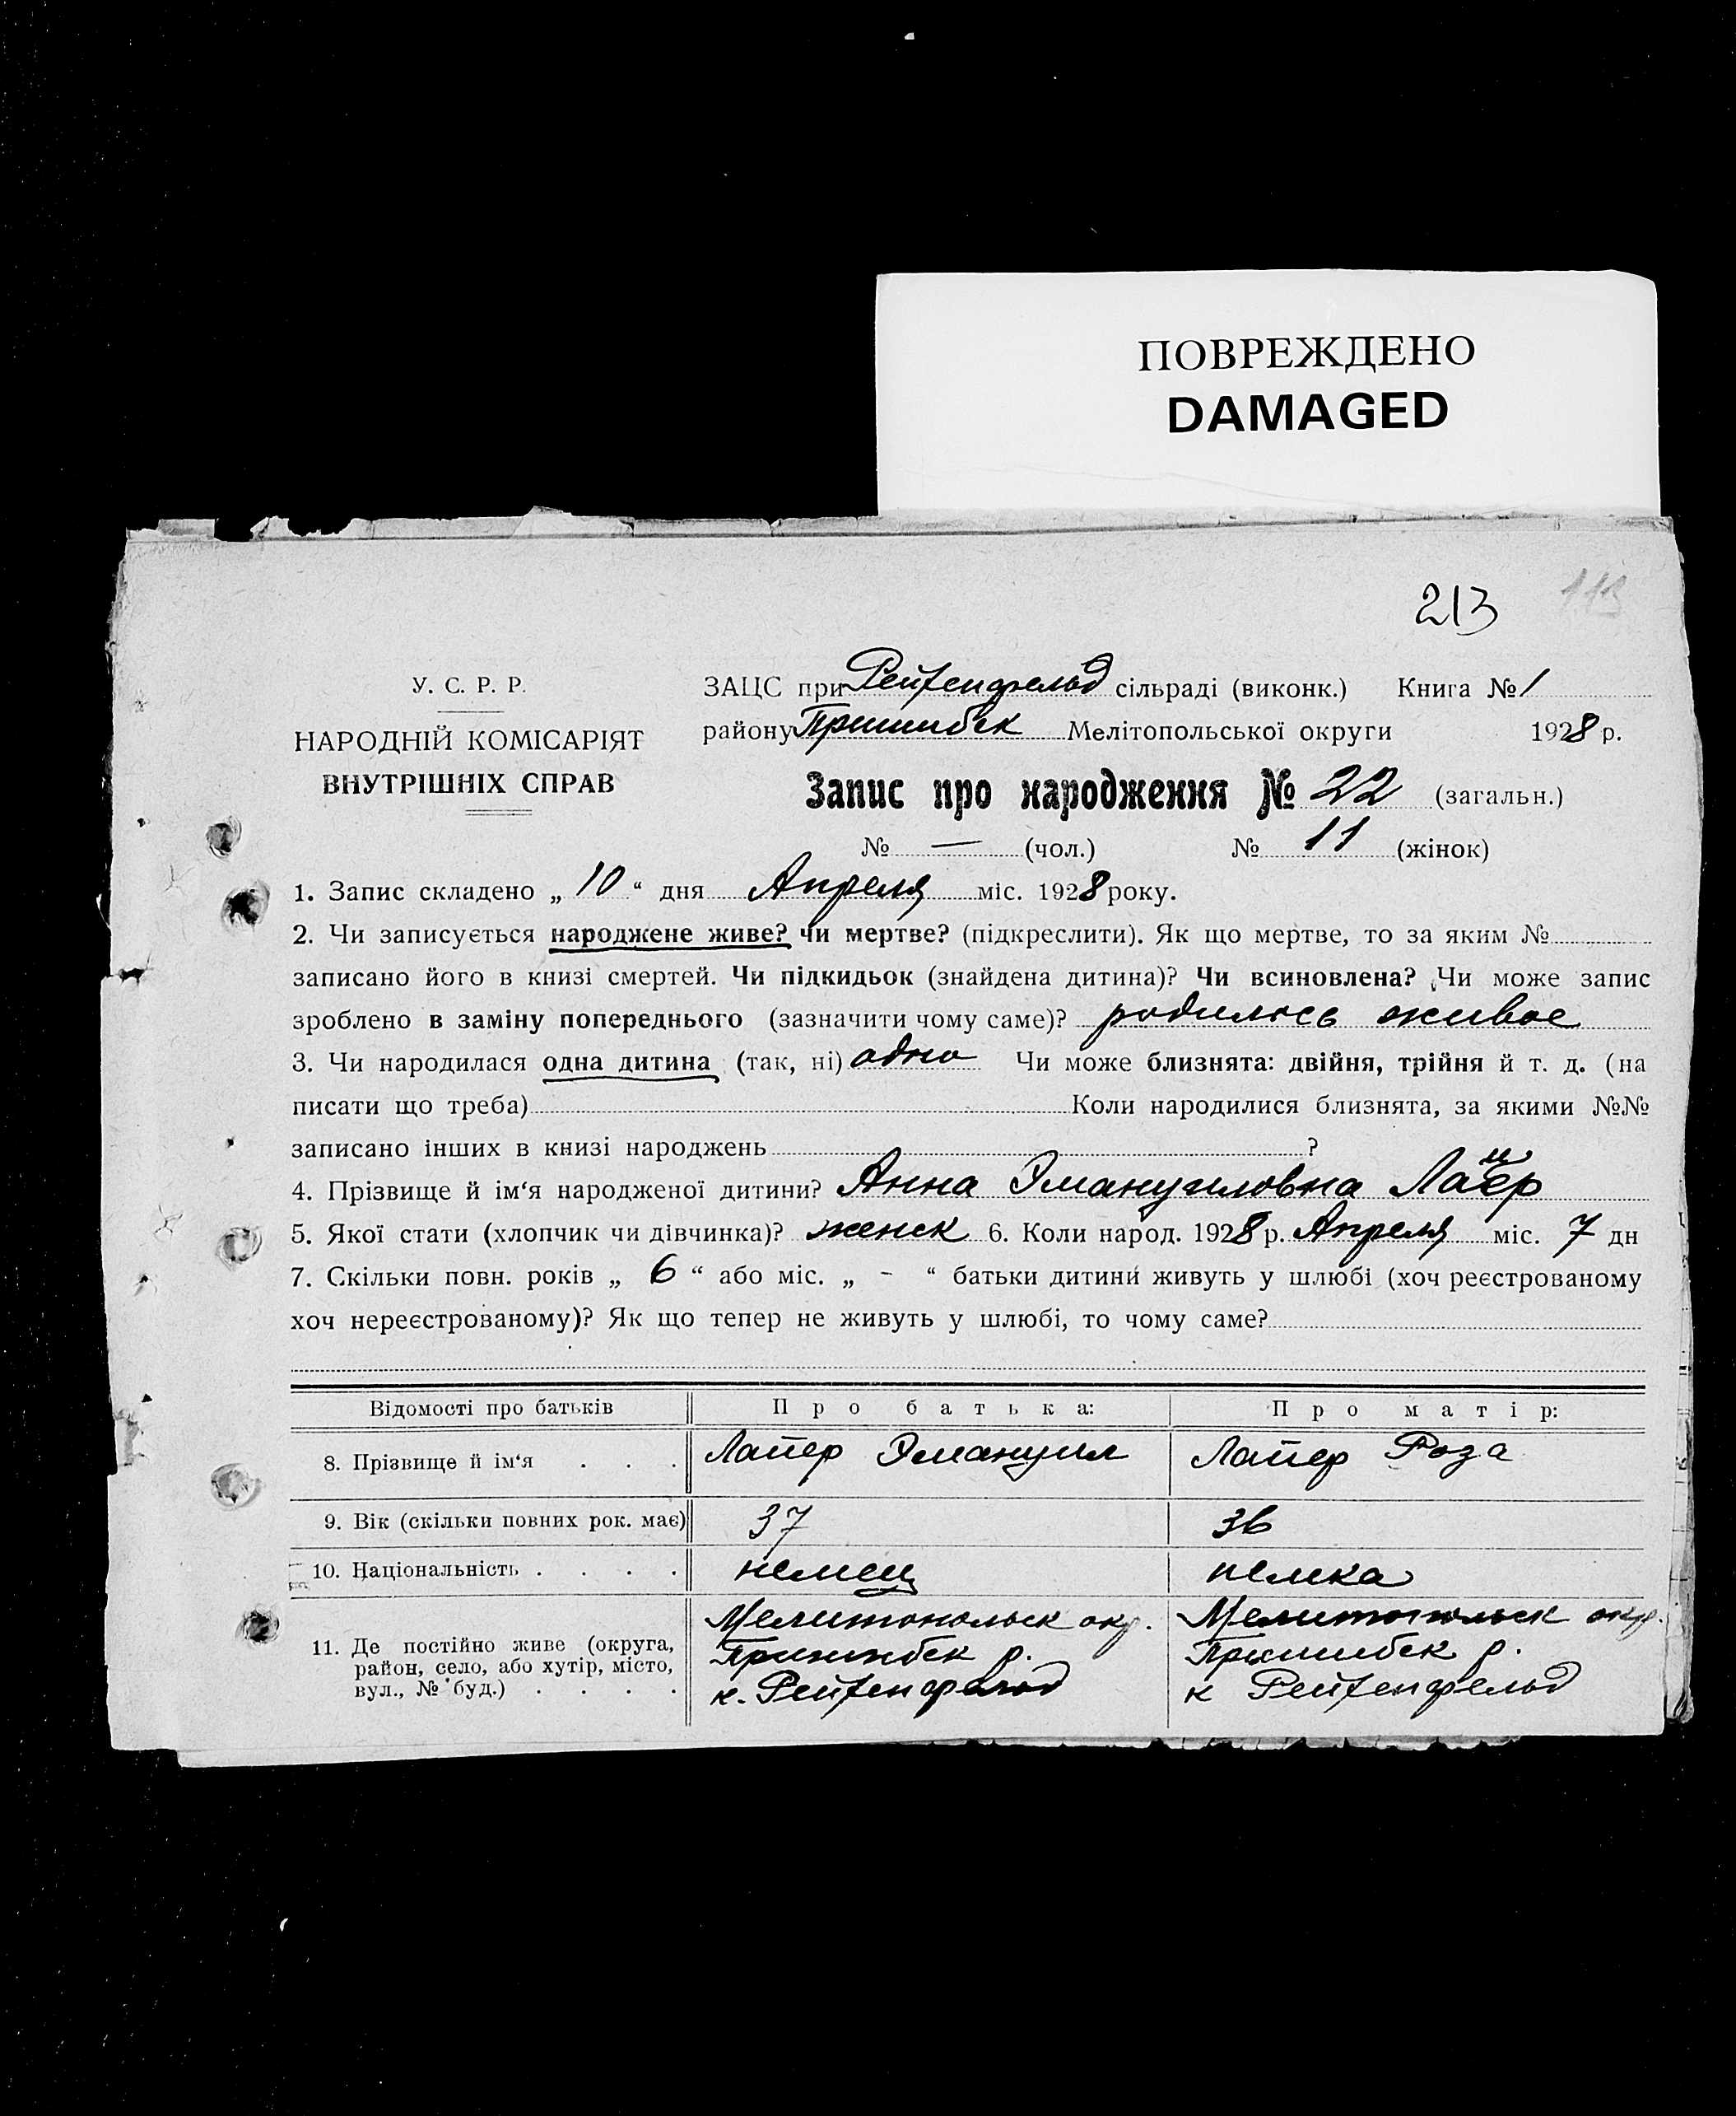 ПОВРЕЖДЕНО
DAMAGED
213
113
У. С. Р. Р.
НАРОДНІЙ КОМІСАРІЯТ
ВНУТРІШНІХ СПРАВ
ЗАЦС при Рейхенфельд сільраді (виконк.) Книга № 1
району Пришибск Мелітопольської округи 1928 р.
Запис про народження № 22 (загальн.)
№ — (чол.) № 11 (жінок)
1. Запис складено „ 10 “ дня Апреля міс. 1928 року.
2. Чи записується народжене живе? чи мертве? (підкреслити). Як що мертве, то за яким №
записано його в книзі смертей. Чи підкидьок (знайдена дитина)? Чи всиновлена? Чи може запис
зроблено в заміну попереднього (зазначити чому саме)? родилось живое
3. Чи народилася одна дитина (так, ні) одно Чи може близнята: двійня, трійня й т. д. (на
писати що треба) Коли народилися близнята, за якими №№
записано інших в книзі народжень ?
4. Прізвище й ім‘я народженої дитини? Анна Эмануиловна Лайер
5. Якої стати (хлопчик чи дівчинка)? женск 6. Коли народ. 1928 р. Апреля міс. 7 дн
7. Скільки повн. років „ 6 “ або міс. „ - “ батьки дитини живуть у шлюбі (хоч реєстрованому
хоч нереєстрованому)? Як що тепер не живуть у шлюбі, то чому саме?
Відомості про батьків Про батька: Про матір:
8. Прізвище й ім‘я . . . Лайер Эмануил Лайер Роза
9. Вік (скільки повних рок. має) 37 36
10. Національність . . . . немец немка
11. Де постійно живе (округа, район, село, або хутір, місто, вул., № буд.) . . . .
Мелитопольск окр. Мелитопольск окр.
Пришибск р. Пришибск р.
к. Рейхенфельд к Рейхенфельд